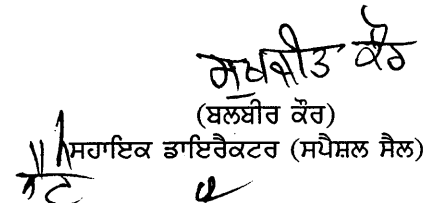 ਸੁਖਜੀਤ ਕੌਰ
(ਬਲਬੀਰ ਕੌਰ)
ਸਹਾਇਕ ਡਾਇਰੈਕਟਰ (ਸਪੈਸ਼ਲ ਸੈਲ)